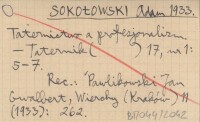 SOKOŁOWSKI Adam 1933.
Taternictwo a profesjonalizm.
– Taternik ( ) 17, nr 1:
5-7.
Rec.: Pawlikowski Jan
Gwalbert, Wierchy (Kraków) 11
(1933): 262.